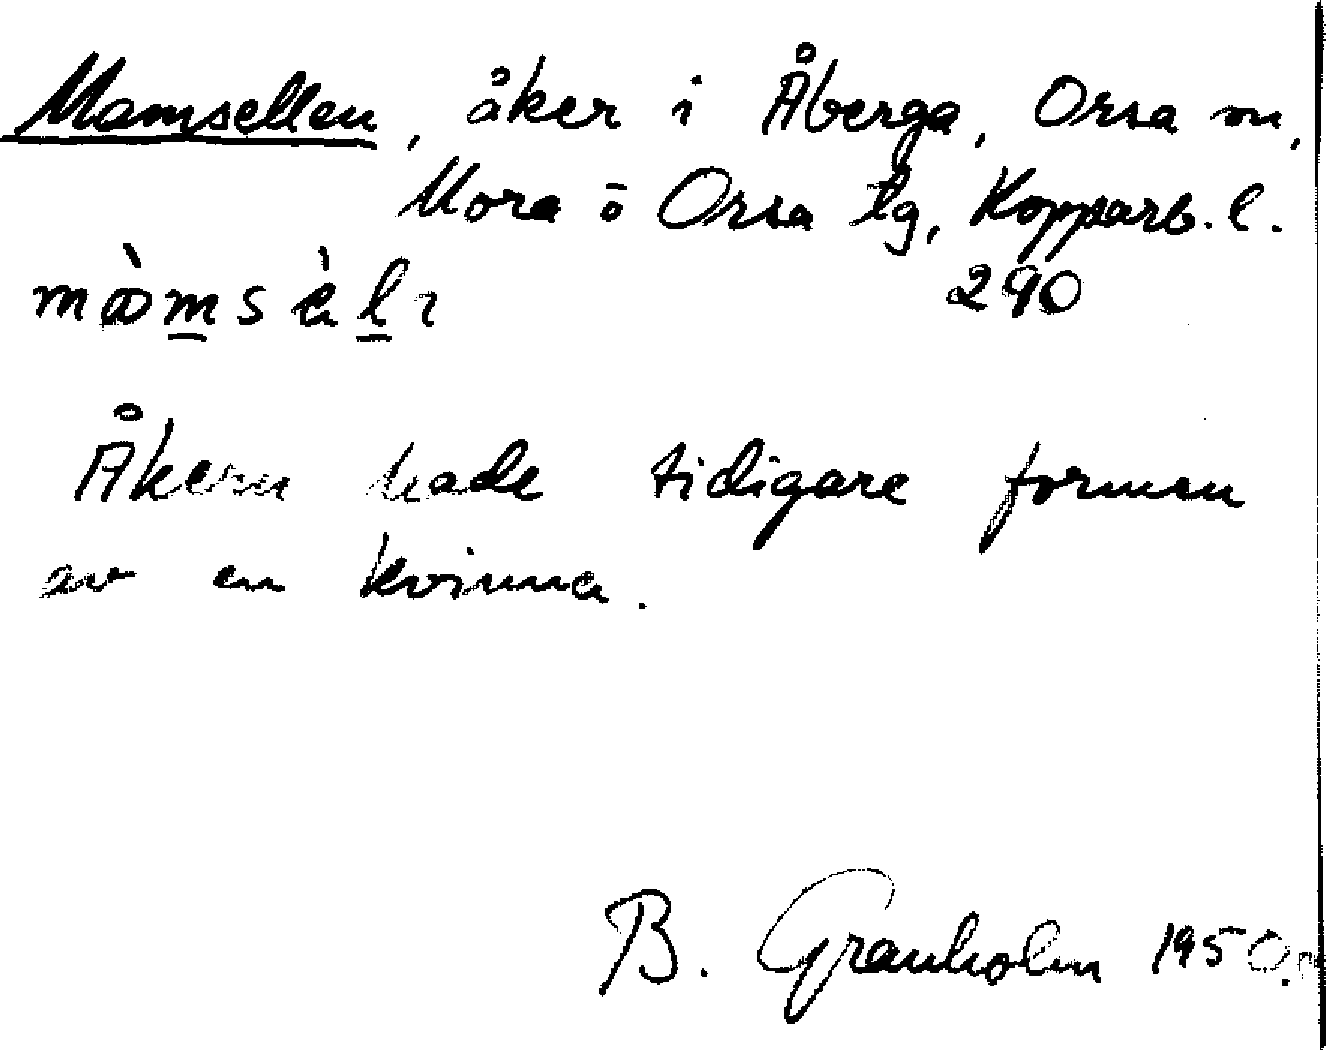 Mamsellen, åker i Åberga, Orsa sn,
Mora o Orsa tg, Kopparb. l.
290
Åkern hade tidigare formen
av en kvinna.
B. Granholm 1950.